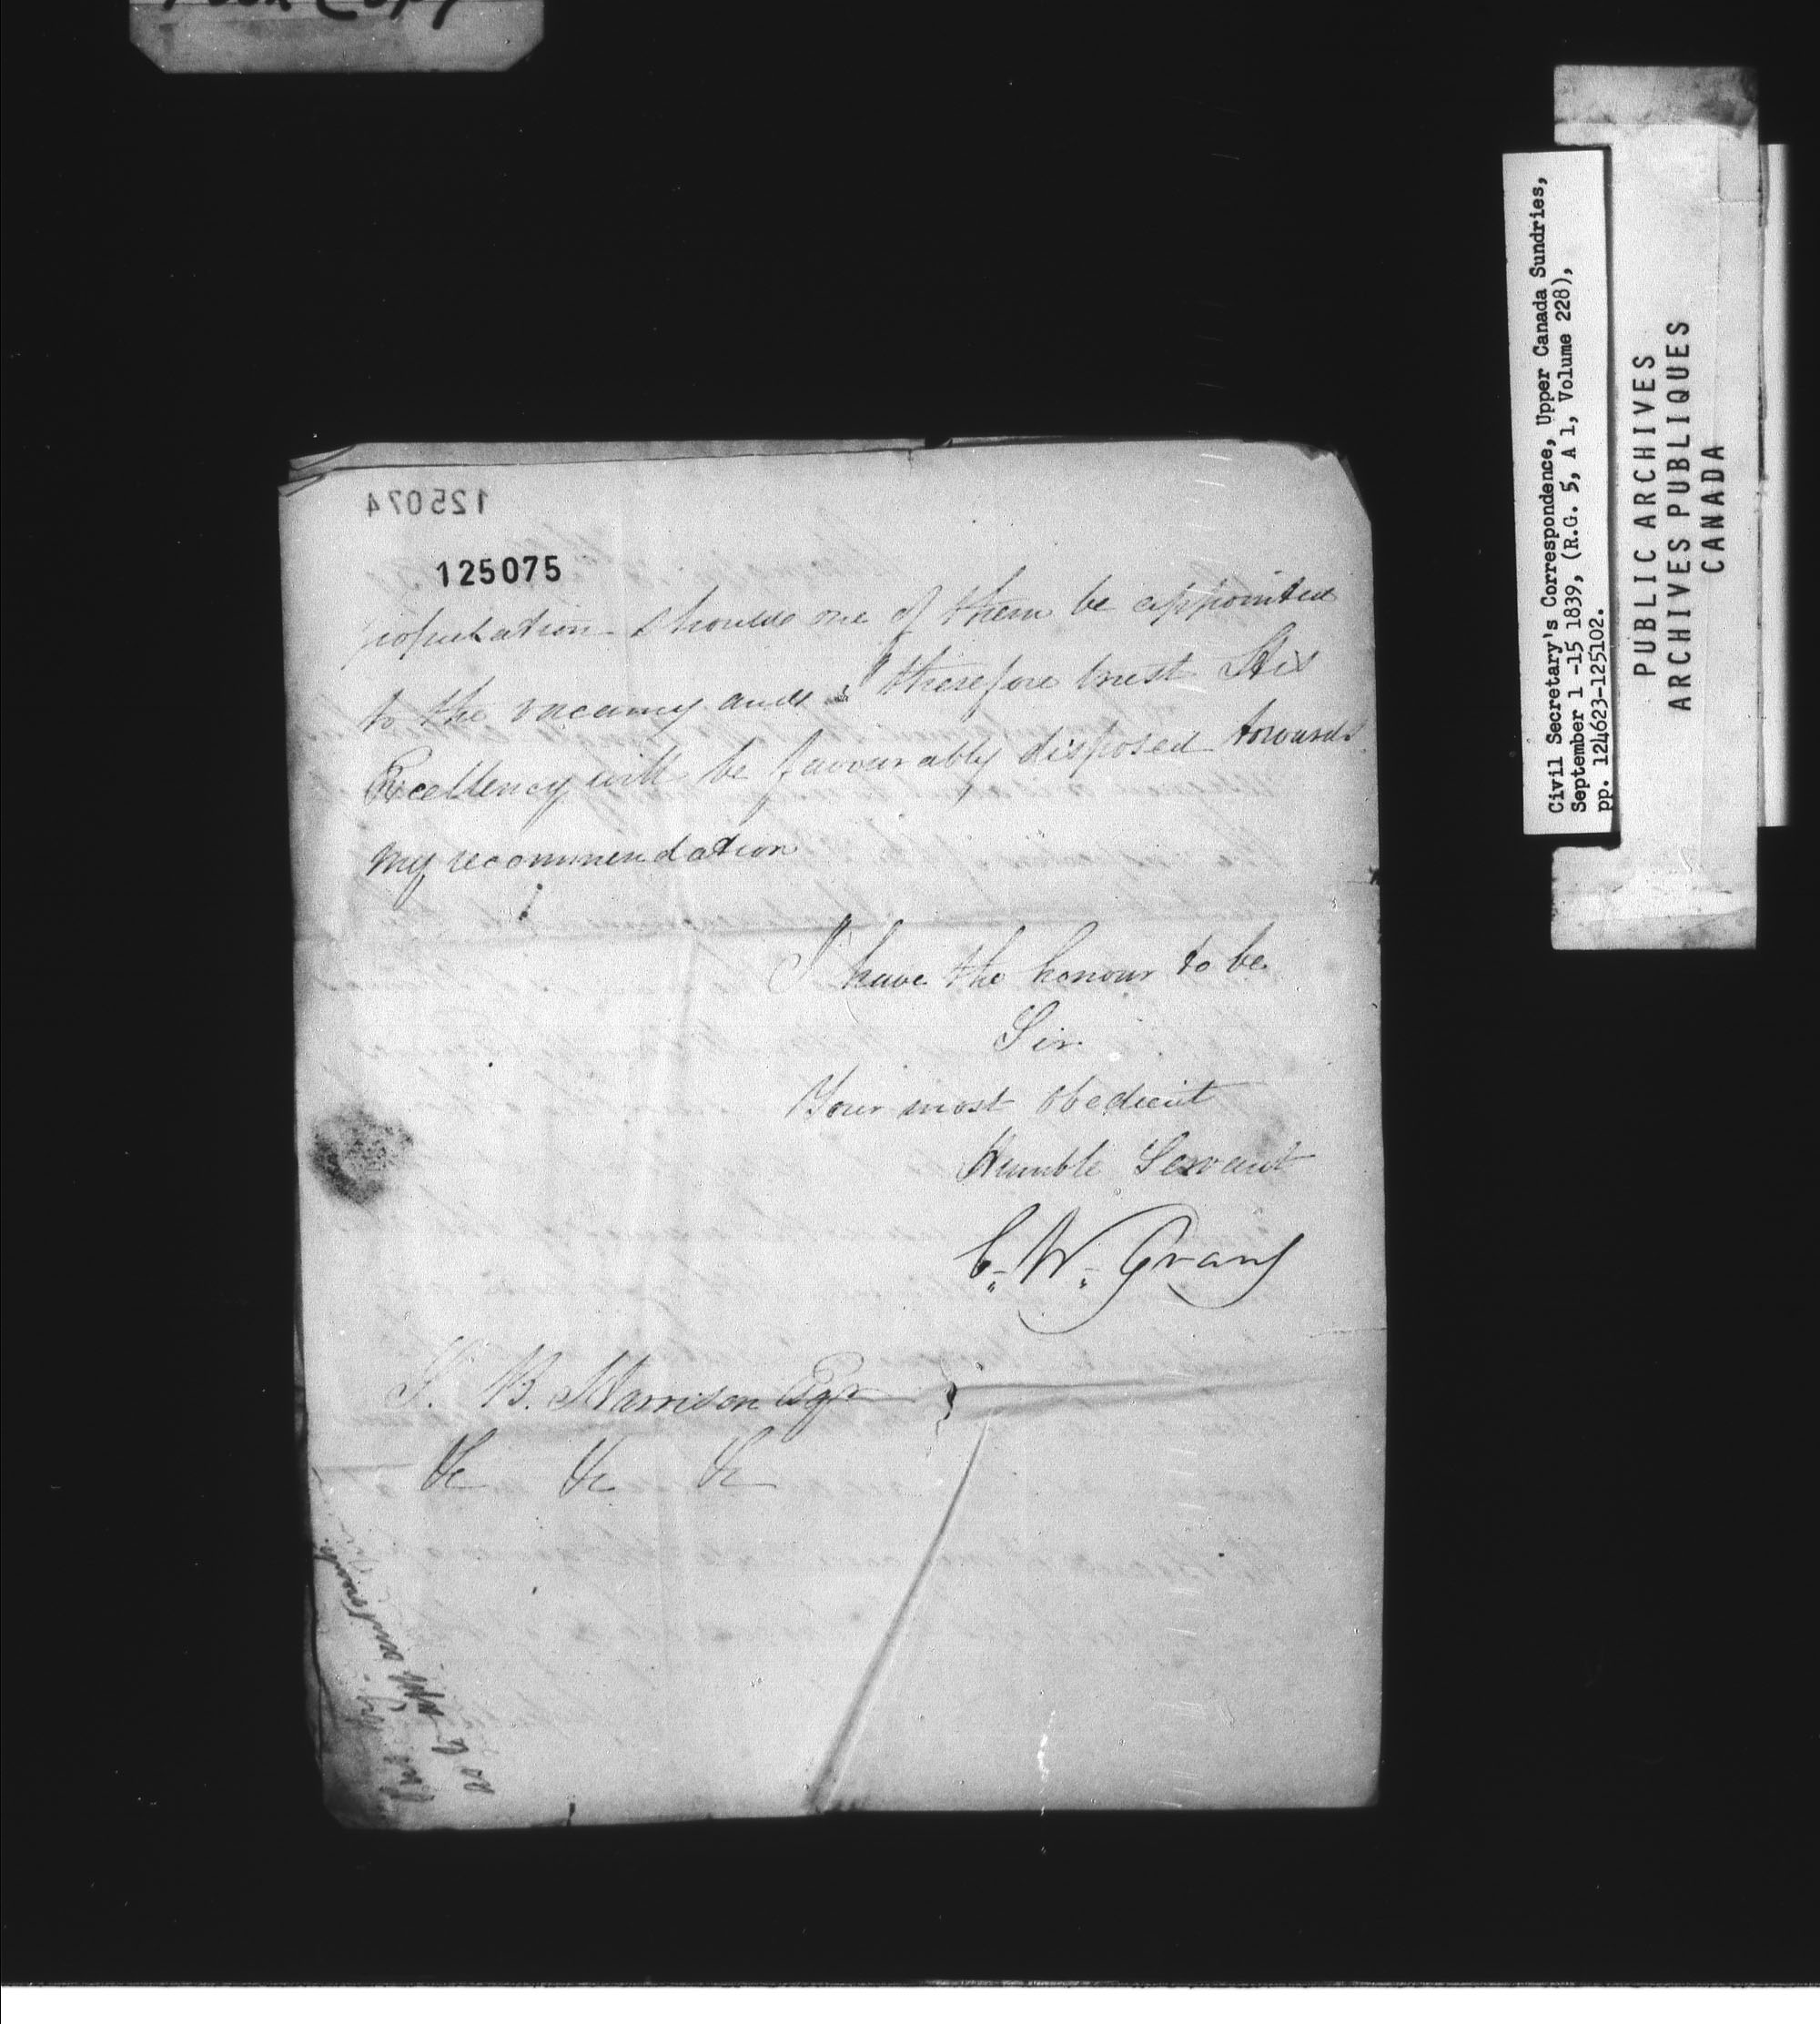 Copy
125074
125075
population should one of them be appointed
to the vacancy and I therefore trust His
Excellency will be favourably disposed towards
my recommendation
I have the honour to be
Sir
Your most obedient
Humble Servant
C. W. Grant
S. B. Harrison Esqr
&c &c &c
Civil Secretary's Correspondence, Upper Canada Sundries,
September 1 -15 1839, (R.G. 5, A 1, Volume 228),
pp. 124623-125102.
PUBLIC ARCHIVES
ARCHIVES PUBLIQUES
CANADA